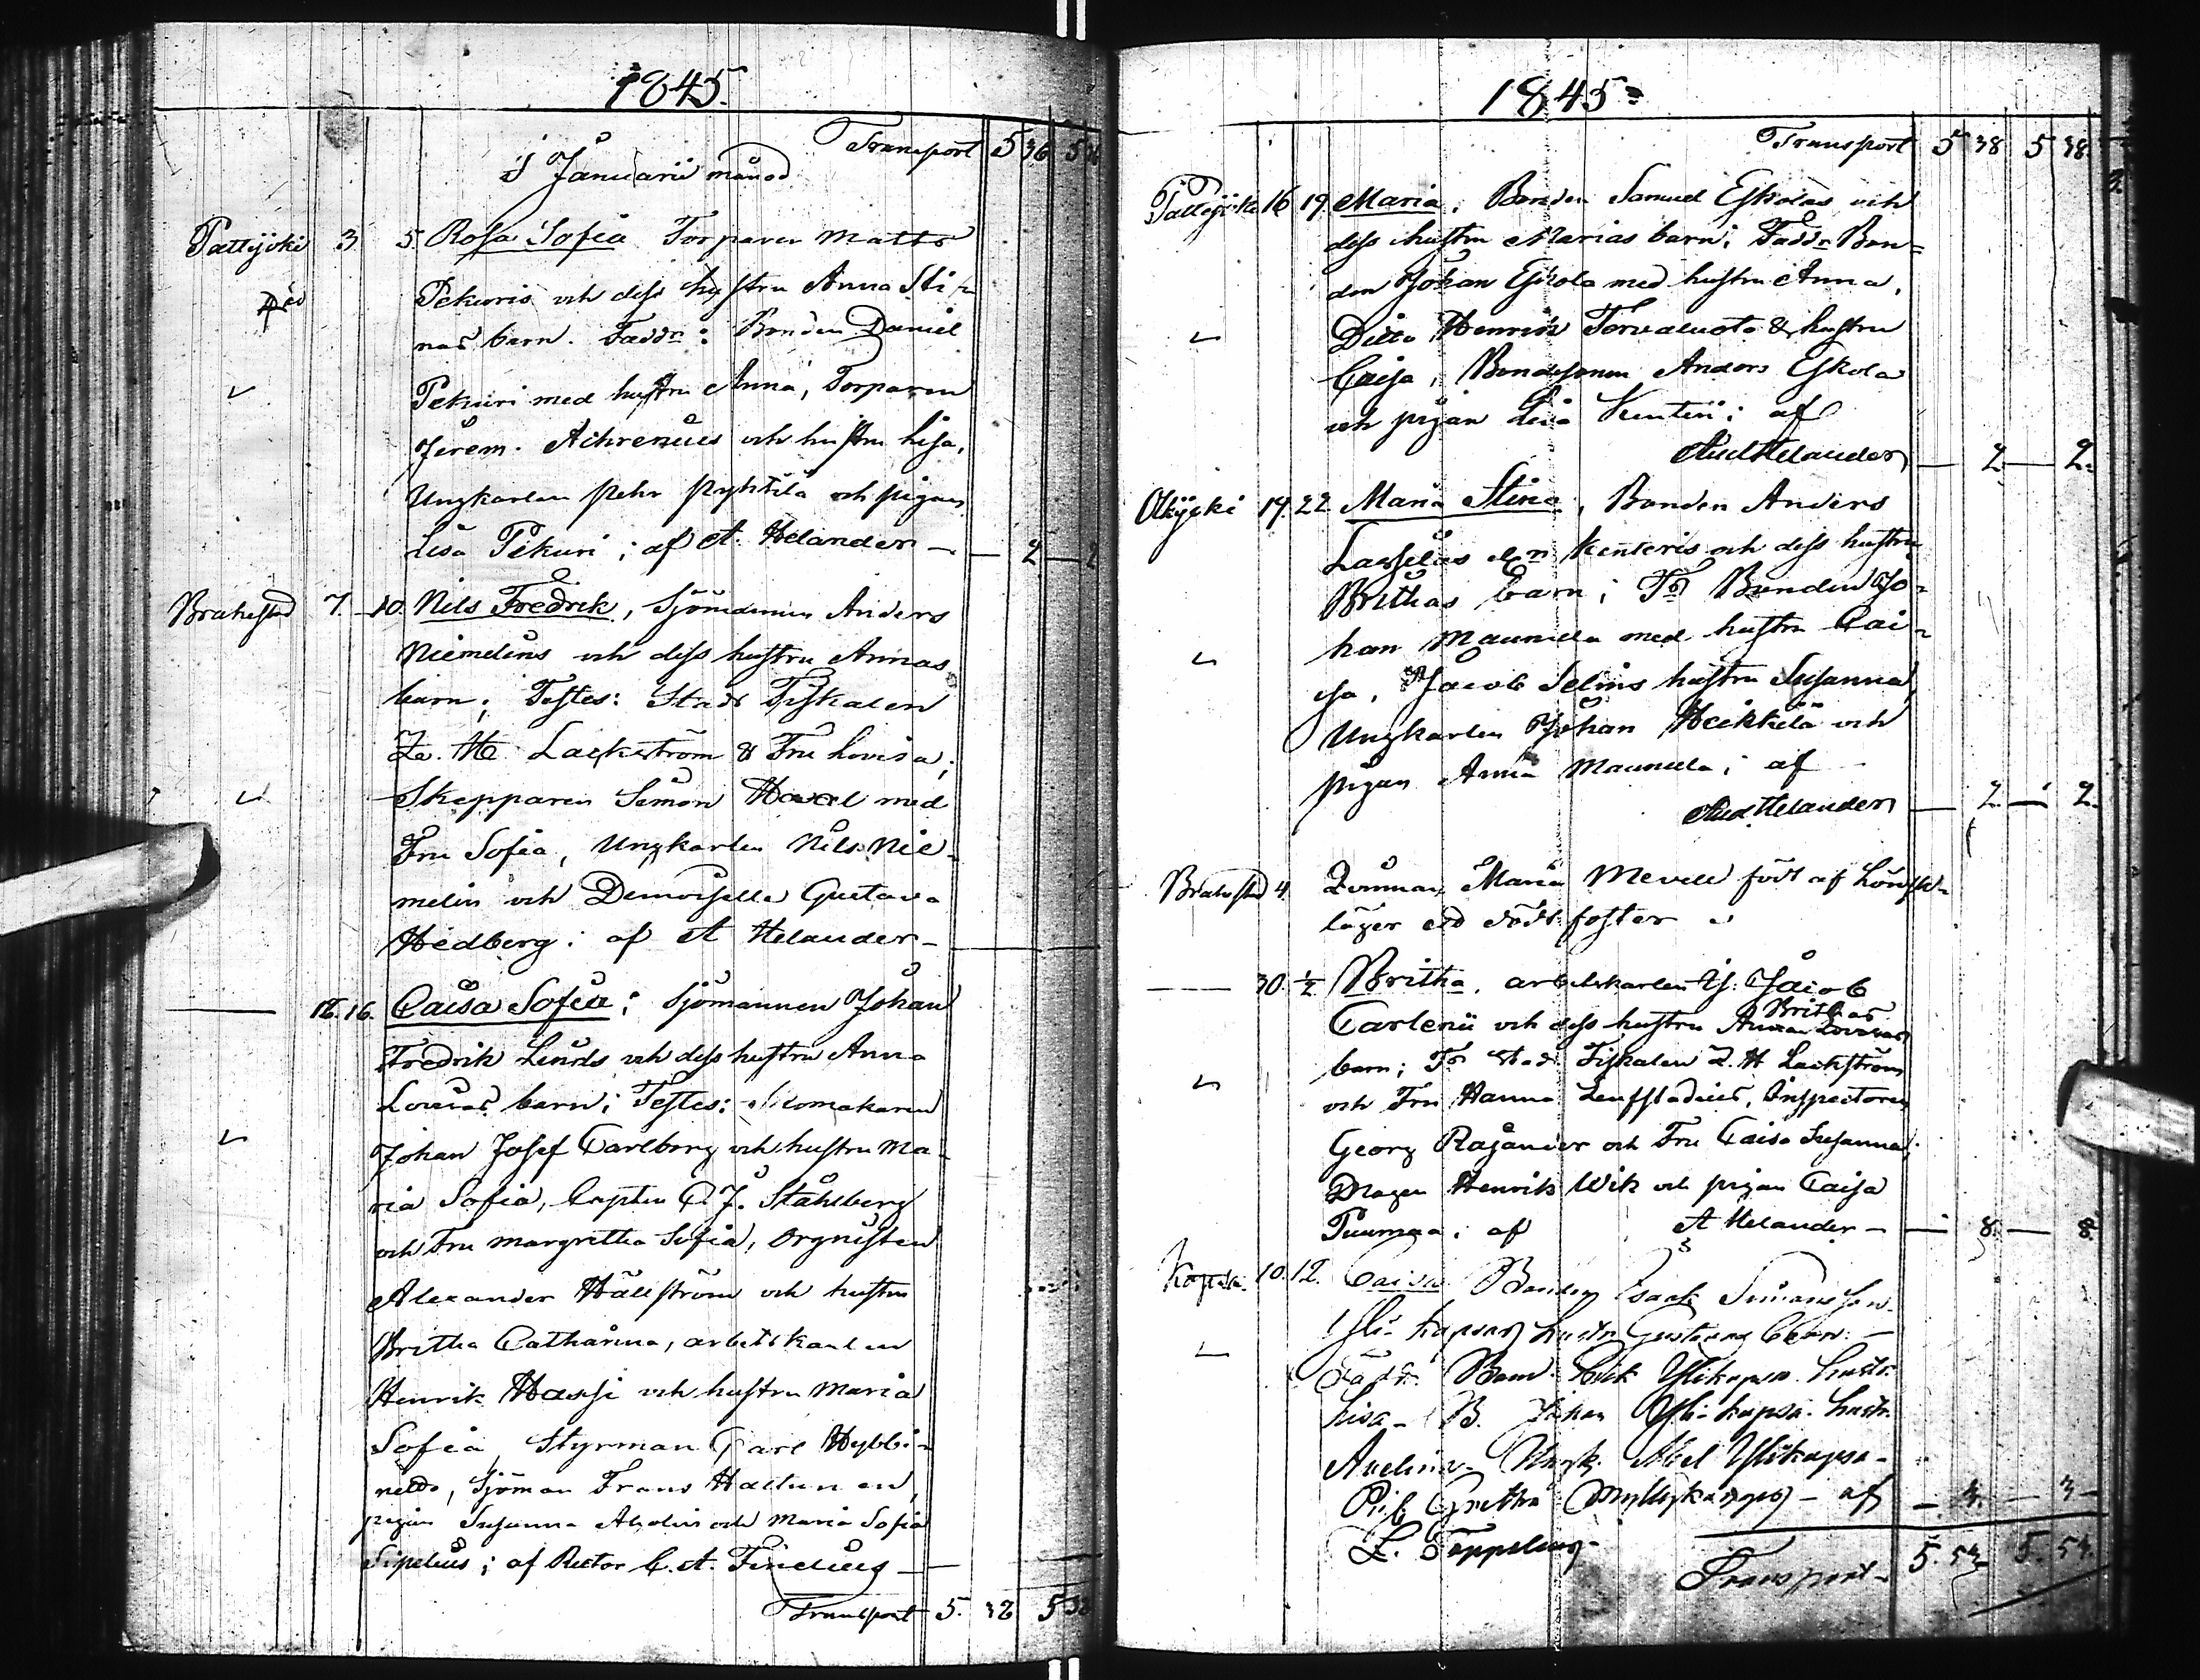 1845.
Transport 5 36 5
i Januarii månad
Pattijoki 3. 5. Rosa Sofia Torparen Matts
Pekuris och dess hustru Anna Sti-
nas barn. Faddr: Bonden Daniel
Pekuri med hustru Anna, Torparen
Jerem. Achrenius och hustru Lisa,
Ungkarlen Pehr Pyhtilä och pigan
Lisa Pekuri; af A. Helander — — 2 — 2
Brahestad 7. 10. Nils Fredrik, Sjömannen Anders
Niemelins och dess hustru Annas
barn; Testes: Stads Fiskalen
Z. H. Lackström & Fru Lovisa,
Skepparen Simon Havel med
Fru Sofia, Ungkarlen Nils Nie-
melin och Demoiselle Gustava
Hedberg; af A Helander —
— 12. 16. Caisa Sofia; Sjömannen Johan
Fredrik Linds och dess hustru Anna
Lovisas barn; Testes: Skomakaren
Johan Josef Carlborg och hustru Ma-
ria Sofia, Capten C. J. Ståhlberg
och Fru Margretha Sofia, Orgnisten
Alexander Hällström och hustru
Britha Catharina, arbetskarlen
Henrik Hassi och hustru Maria
Sofia, Styrman Carl Hybbi-
nette, Sjöman Frans Hallunen,
pigan Susanna Aholin och Maria Sofia
Sipelius; af Rector C. A. Finelius —
Transport 5. 38 5 38
1845
Transport 5 38 5 38.
Pattijoki 16 19 Maria, Bonden Samuel Eskolas och
dess hustru Marias barn; Faddr Bon-
den Johan Eskola med hustru Anna,
Ditto Henrik Tervaluoto & hustru
Caisa, Bondesonen Anders Eskola
och pigan Lisa Kentiri; af
And Helander — 2 — 2.
Olkijoki 19. 22. Maria Stina, Bonden Anders
Lasselius eln Kenteris och dess hustru
Brithas barn; Fr Bonden Jo-
han Maunula med hustru Cai-
sa, Jacob Selins hustru Susanna,
Ungkarlen Johan Heikkilä och
pigan Anna Maunula; af
And Helander — 2. — 2.
Brahestad 4. Qvinnan Maria födt af Lönsk-
läger ett dödt foster
— 30. ½ Britha, arbetskarlen Jacob
Carlenii och dess hustru Brithas
barn; Fr Stads Fiskalen Z. H Lackström
och Fru Hanna Leufstadius, Inspectoren
Georg Rajander och Fru Caisa Susanna,
Drägen Henrik Wik och pigan Caisa
Puumaa; af A Helander — — 8. — 8.
Kopsa 10. 12. Caisa Bonden Isack Simonsson
Yli-kopsas hustr Gustavas barn: —
Faddr. Bond. Erik Ylikopsa hustr.
Lisa — B. Johan Yli-kopsa. hustr.
Avelina — Ungk. Abel Ylikopsa —
Pig. Gretha Myllykangas — af — 3. — 3 —
L. Toppelius
Transport — 5. 53. 5. 53.